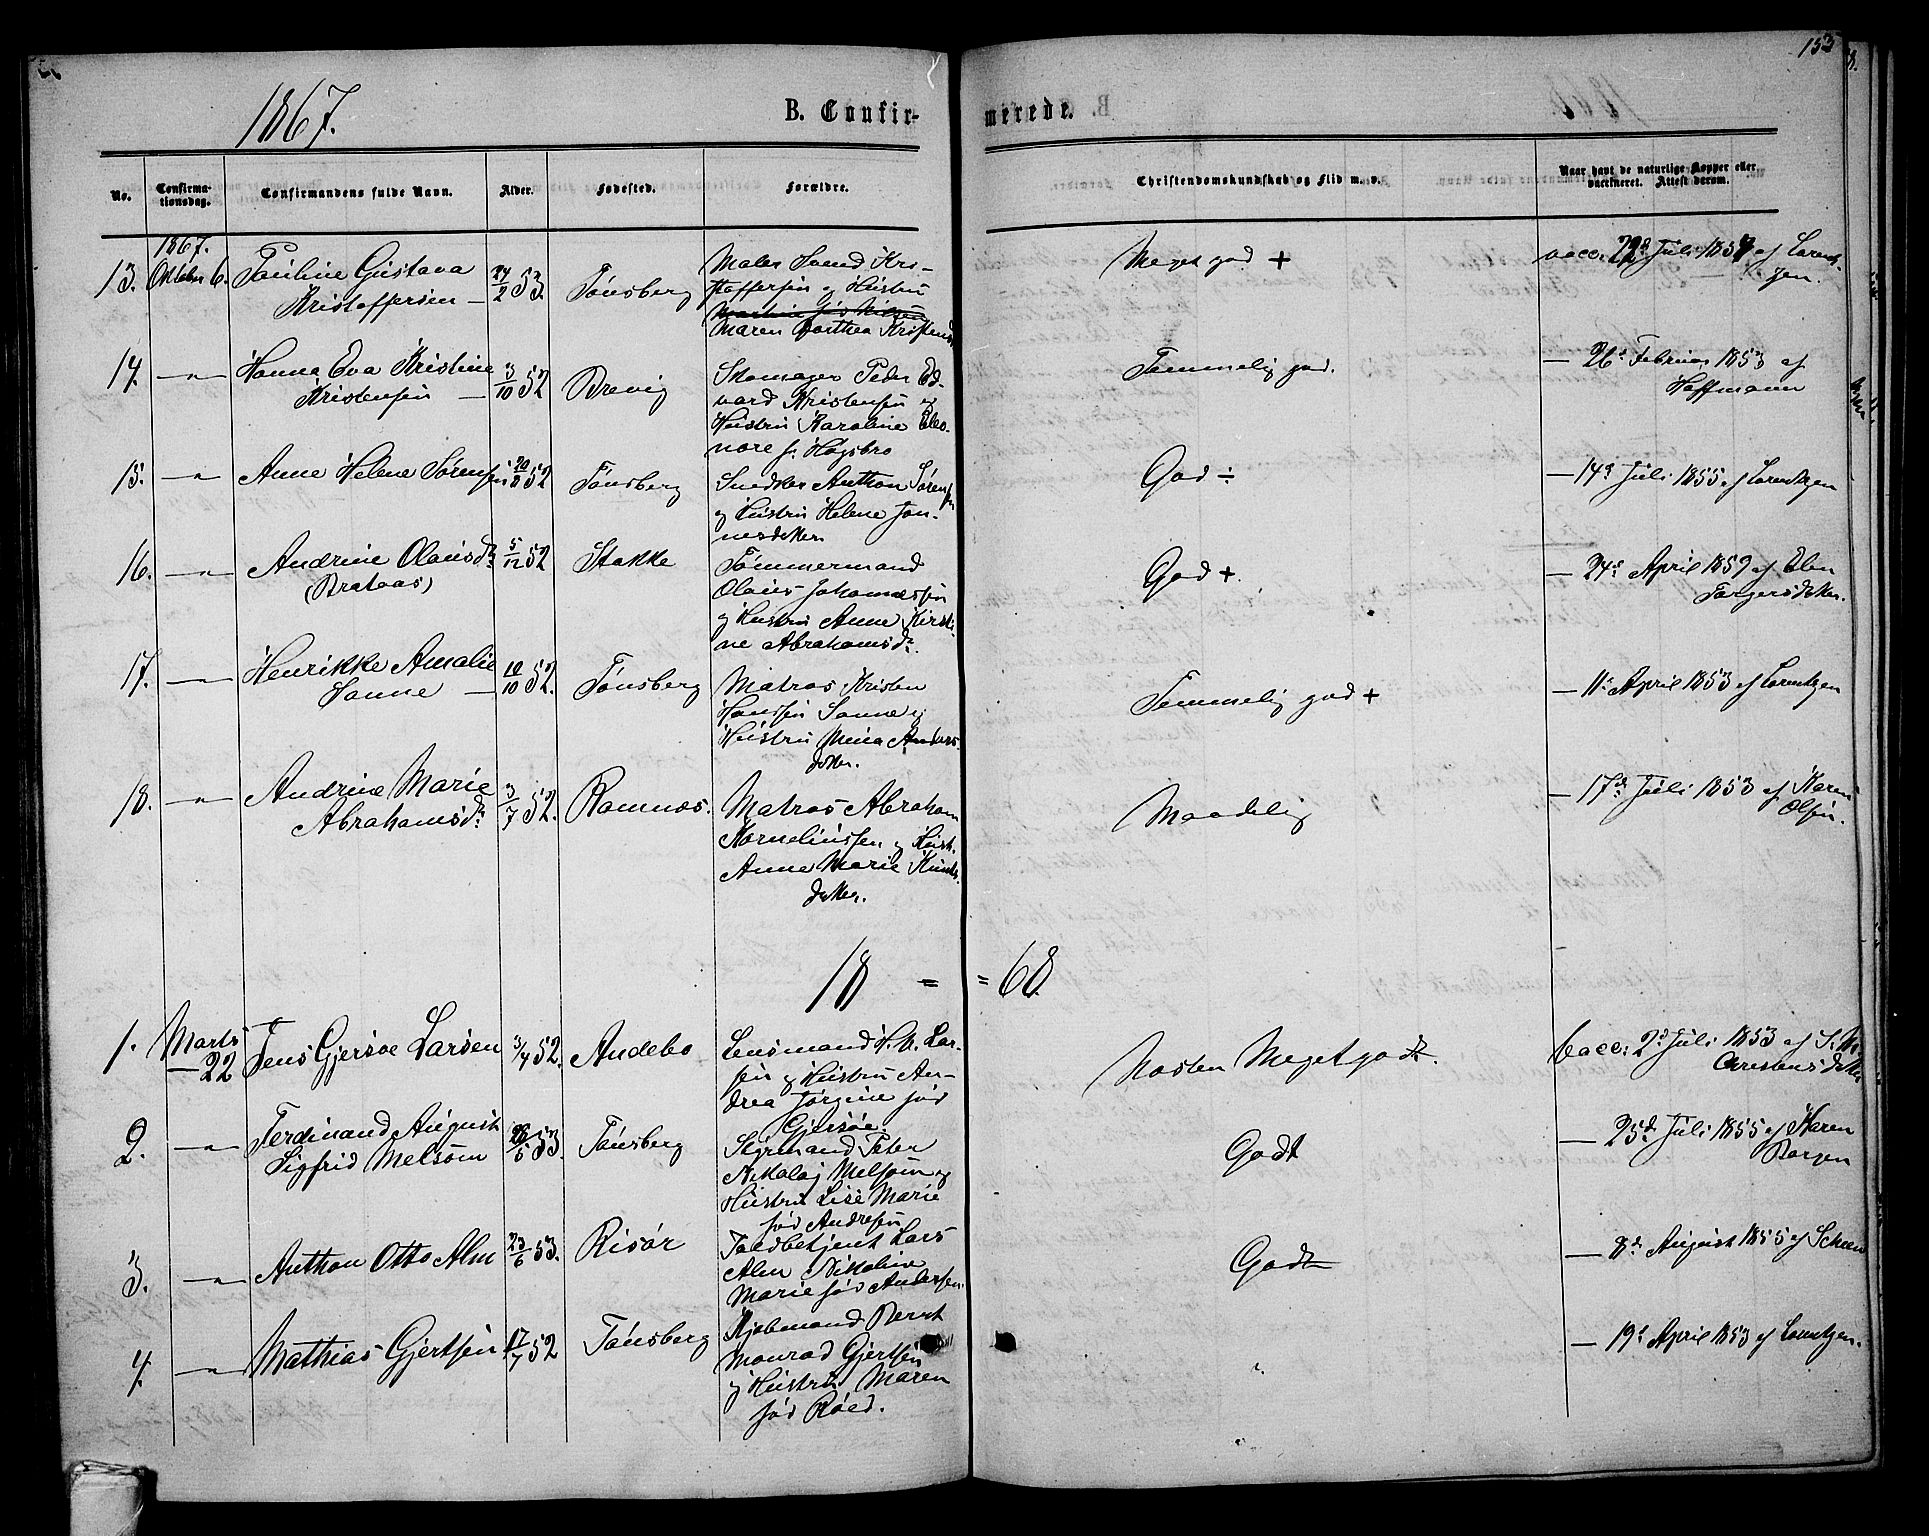 153
1867.
B. Confir-
merede.
No.
Confirma-
tionsdag.
Confirmandens fulde Navn.
Alder.
Fødested.
Forældre.
Christendomskundskab og Flid m. v.
Naar havt de naturlige Kopper eller
vaccineret. Attest derom.
1867.
13. Oktober 6. Pauline Gustava
Kristoffersen —
24/2 53. Tønsberg
Maler Svend Kri-
stoffersen og Hustru
Maren Dorthea Kristensd
Meget god +
vacc: 22d Juli 1857 af Lorent-
zen.
14. —"— Hanna Eva Kristine
Kristensen —
3/10 52 Brevig
Skomager Peder Ed-
vard Kristensen og
Hustru Karoline Eleo-
nore f. Høgsbro
Temmelig god.
— 26d Februar 1853 af
Hoffmann
15. —"— Anne Helene Sørensen 20/8 52 Tønsberg
Snedker Anthon Sørensen
og Hustru Helene Jon-
nesdatter
God ÷
— 14d Juli 1855 af Lorentzen
16. —"— Andrine Olausdr
(Brataas)
5/12 52 Stokke
Tømmermand
Olaus Johannessen
og Hustru Anne Kirsti-
ne Abrahamsdr.
God +.
— 24d April 1859 af Elen
Torgersdatter.
17. —"— Henrikke Amalie
Sanne —
10/10 52. Tønsberg
Matros Kristen
Hanssen Sanne og
Hustru Mina Anders-
datter.
Temmelig god +
— 11d April 1853 af Lorentzen
18. —"— Andrine Marie
Abrahamsdr.
3/7 52. Ramnæs.
Matros Abraham
Korneliussen og Hust.
Anne Marie Knuts-
datter.
Maadelig
— 17d Juli 1853 af Karen
Olsen.
18 = = 68.
1. Marts
— 22 Jens Gjersøe Larsen 3/4 52. Andebo
Lensmand H. M. Lar-
sen og Hustru An-
drea Jørgine fød
Gjersøe.
Næsten Meget godt.
Vacc: 2d Juli 1853 af
Christensdatter
2. —"— Ferdinand August
Sigfrid Melsom
28/5 53. Tønsberg
Styrmand Peter
Nikolaj Melsom og
Hustru Lise Marie
fød Andresen
Godt
— 25d Juli 1855 af Karen
Borgen
3. —"— Anthon Otto Alm 23/6 53. Risør
Toldbetjent Lars
Alm Nikoline
Marie fød Andersen.
Godt
— 8d August 1855 af Scheen
4. —"— Mathias Gjertsen 17/7 52 Tønsberg
Kjøbmand Bernt
Monrad Gjertsen
og Hustru Maren
fød Røed.
"
— 19d April 1853 af Lorentzen.